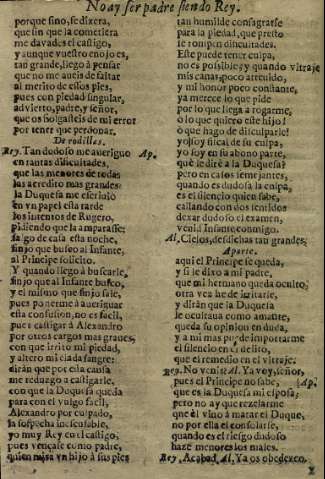 No ay ser padre siendo Rey.
porque sino, se dixera,
que sin que la cometiera
me davades el castigo,
y aunque vuestro enojo es,
tan grande, llegò à pensar
que no me aueis de faltar
al merito de essos pies,
pues con piedad singular,
advierto, padre, y señor,
que os holgasteis de mi error
por tener que perdonar.
De rodillas.
Rey. Tan dudoso me aueriguo Ap.
en tantas dificultades,
que las menores de todas
las acredito mas grandes:
la Duquesa me escriuiò
en vn papel esta tarde
los intentos de Rugero,
pidiendo que la amparasse:
salgo de casa esta noche,
finjo que busco al Infante,
al Principe solicito.
Y quando llego à buscarle,
finjo que al Infante busco,
y el mismo que finjo sale,
pues ponerme à aueriguar
esta confusion, no es facil,
pues castigar à Alexandro
por otros cargos mas graues,
con que irrito mi piedad,
y altero mi elada sangre:
diràn que por esta causa
me reduzgo a castigarle,
con que la Duquesa queda
para con el vulgo facil,
Alexandro por culpado,
la sospecha inescusable,
yo muy Rey en el castigo,
pues vençase como padre,
quien mira vn hijo à sus pies
tan humilde consagrarse
para la piedad, que presto
se rompen dificultades.
Este puede tener culpa,
no es possible, y quando vltraje
mis canas, poco atreuido,
y mi honor poco constante,
ya merece lo que pide
por lo que llega à rogarme,
ò lo que quiero este hijo!
ò que hago de disculparle!
yo soy fiscal de su culpa,
yo soy en su abono parte,
què le dirè a la Duquesa?
pero en casos semejantes,
quando es dudosa la culpa,
es el silencio quien sabe,
callando con dos sentidos
dexar dudoso el examen,
venid Infante conmigo.
Al. Cielos, desdichas tan grandes,
Aparte.
aqui el Principe se queda,
y si le dixo à mi padre,
que mi hermano queda oculto,
otra vez he de irritarle,
y diràn que la Duquesa
le ocultaua como amante,
queda su opinion en duda,
y a mi mas puede importarme
el silencio en el delito,
que el remedio en el vltraje.
Rey. No venis? Al. Ya voy, señor,
pues el Principe no sabe, Ap.
que es la Duquesa mi esposa;
pero no ay que rezelarme
que èl vino à matar el Duque,
no por ella el consolarle,
quando es el riesgo dudoso
haze menores los males.
Rey. Acabad. Al. Ya os obedezco.